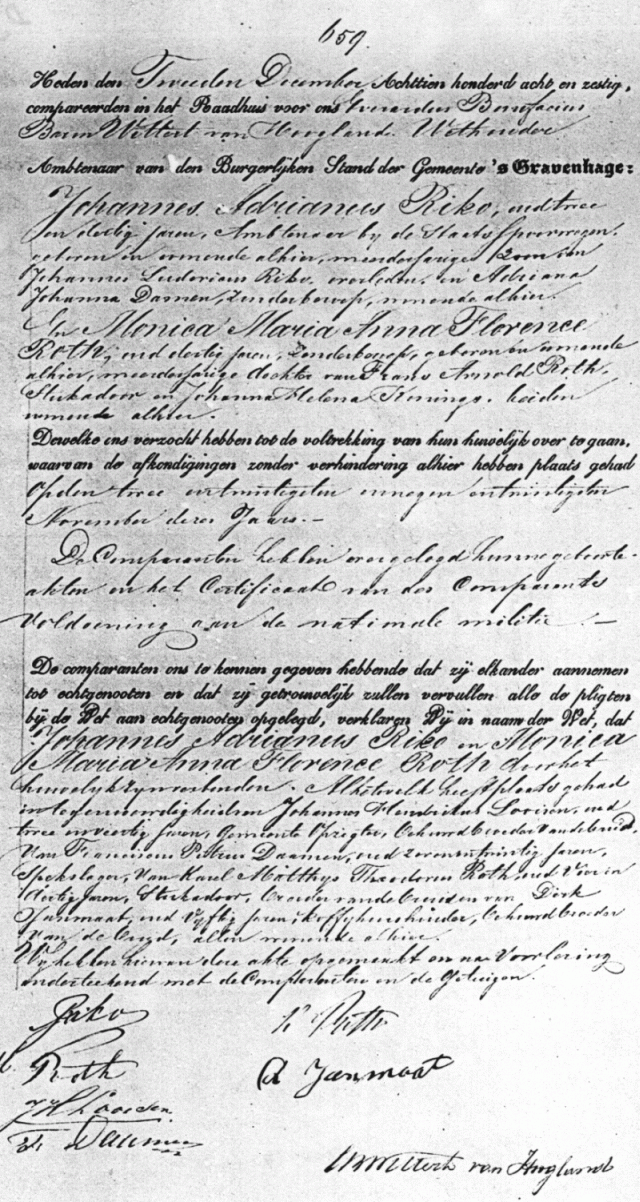 659.
Heden den Tweeden December Achttien honderd acht en zestig,
compareerden in het Raadhuis voor ons Everardus Bonifacius
Baron Wittert van Hoogland. Wethouder
Ambtenaar van den Burgerlijken Stand der Gemeente 's Gravenhage:
Johannes Adrianus Riko, oud twee
en dertig jaren, Ambtenaar bij de Staats Spoorwegen,
geboren en wonende alhier, meerderjarige Zoon van
Johannes Ludovicus Riko, overleden, en Adriana
Johanna Damen, Zonder beroep, wonende alhier.
En Monica Maria Anna Florence
Roth, oud dertig jaren, Zonder beroep, geboren en wonende
alhier, meerderjarige dochter van Frans Arnold Roth,
Stukadoor en Johanna Helena Konings, beiden
wonende alhier.
Dewelke ons verzocht hebben tot de voltrekking van hun huwelijk over te gaan,
waarvan de afkondigingen zonder verhindering alhier hebben plaats gehad
Op den twee en twintigsten en negen en twintigsten
November dezes Jaars.—
De Comparanten hebben overgelegd hunne geboorte-
akten en het Certificaat van des Comparants
voldoening aan de nationale militie.—
De comparanten ons te kennen gegeven hebbende dat zij elkander aannemen
tot echtgenooten en dat zij getrouwelijk zullen vervullen alle de pligten
bij de Wet aan echtgenooten opgelegd, verklaren Wij in naam der Wet, dat
Johannes Adrianus Riko en Monica
Maria Anna Florence Roth door het
huwelijk zijn verbonden. Alhetwelk heeft plaats gehad
in tegenwoordigheid van Johannes Hendrikus Looisen, oud
twee en veertig jaren, Gemeente Opzigter, behuwd broeder van de bruid,
Van Franciscus Petrus Daamen, oud zeven en twintig jaren,
Spekslager, Van Karel Matthijs Theodorus Roth, oud Vier en
dertig jaren, Stukadoor, broeder van de bruid en van Dirk
Janmaat, oud vijftig jaren, Koffyhuishouder, behuwd broeder
van de bruid, allen wonende alhier.
Wij hebben hiervan deze akte opgemaakt en na Voorlezing
onderteekend met de Comparanten en de Getuigen.
Riko
K Roth
Roth
D Janmaat
JH Looisen
Daamen
Wittert van Hoogland